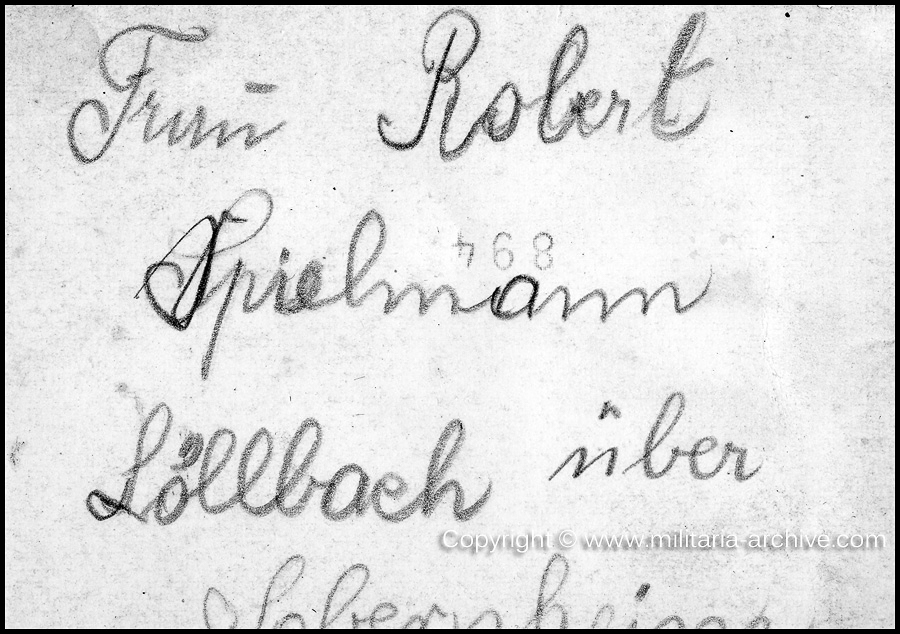 Frau Robert
894
Spielmann
Löllbach über
Copyright © www.militaria-archive.com
Sobernheim